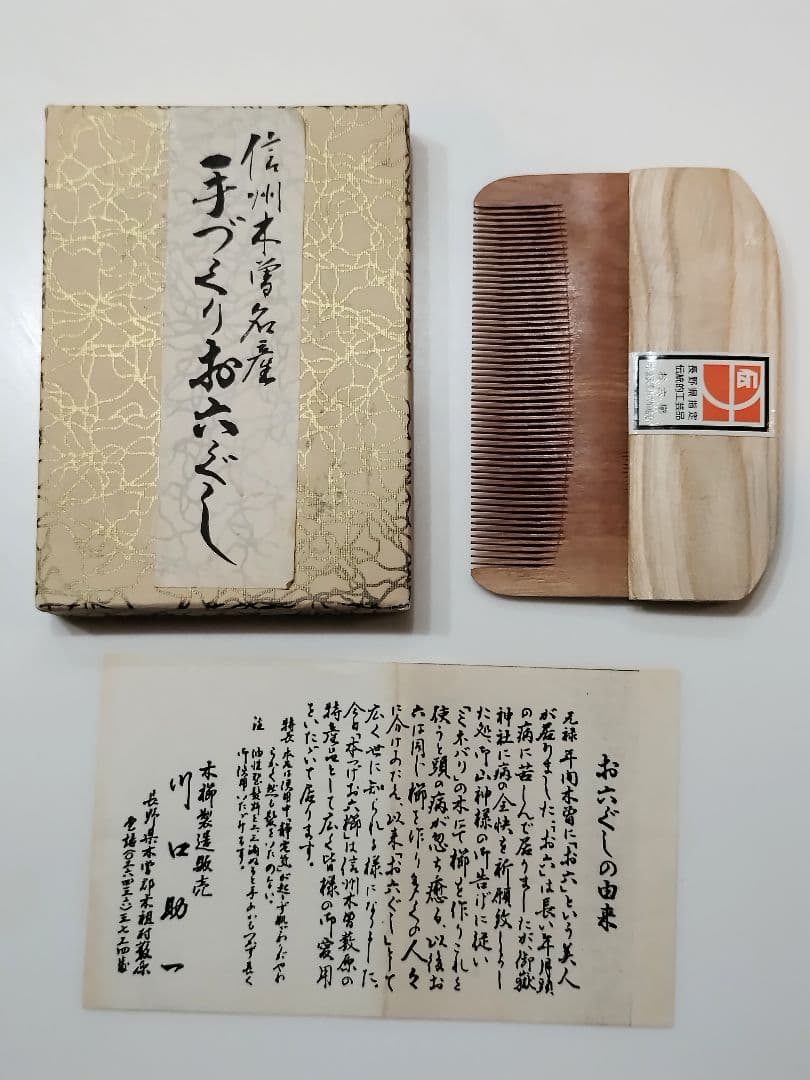 信州木曽名産
手づくりお六ぐし
長野県指定
伝統的工芸品
お六ぐしの由来
元禄年間木曽に「お六」という美人
が居りました、「お六」は長い年月頭
の病に苦しんで居りましたが御嶽
神社に病の全快を祈願致しまし
た処御山神様の御告げに従い
「ミネバリ」の木にて櫛を作りこれを
使うと頭の病が忽ち癒る、以後お
六は同じ櫛を作り多くの人々
に分け与え、以来「お六ぐし」として
広く世に知られる様になりました、
今日「本つげお六櫛」は信州木曽薮原の
特産品として広く皆様の御愛用
をいただいて居ります。
特長 本品は使用中静電気が起らず
注
木櫛製造販売
川口助一
長野県木曽郡木祖村薮原